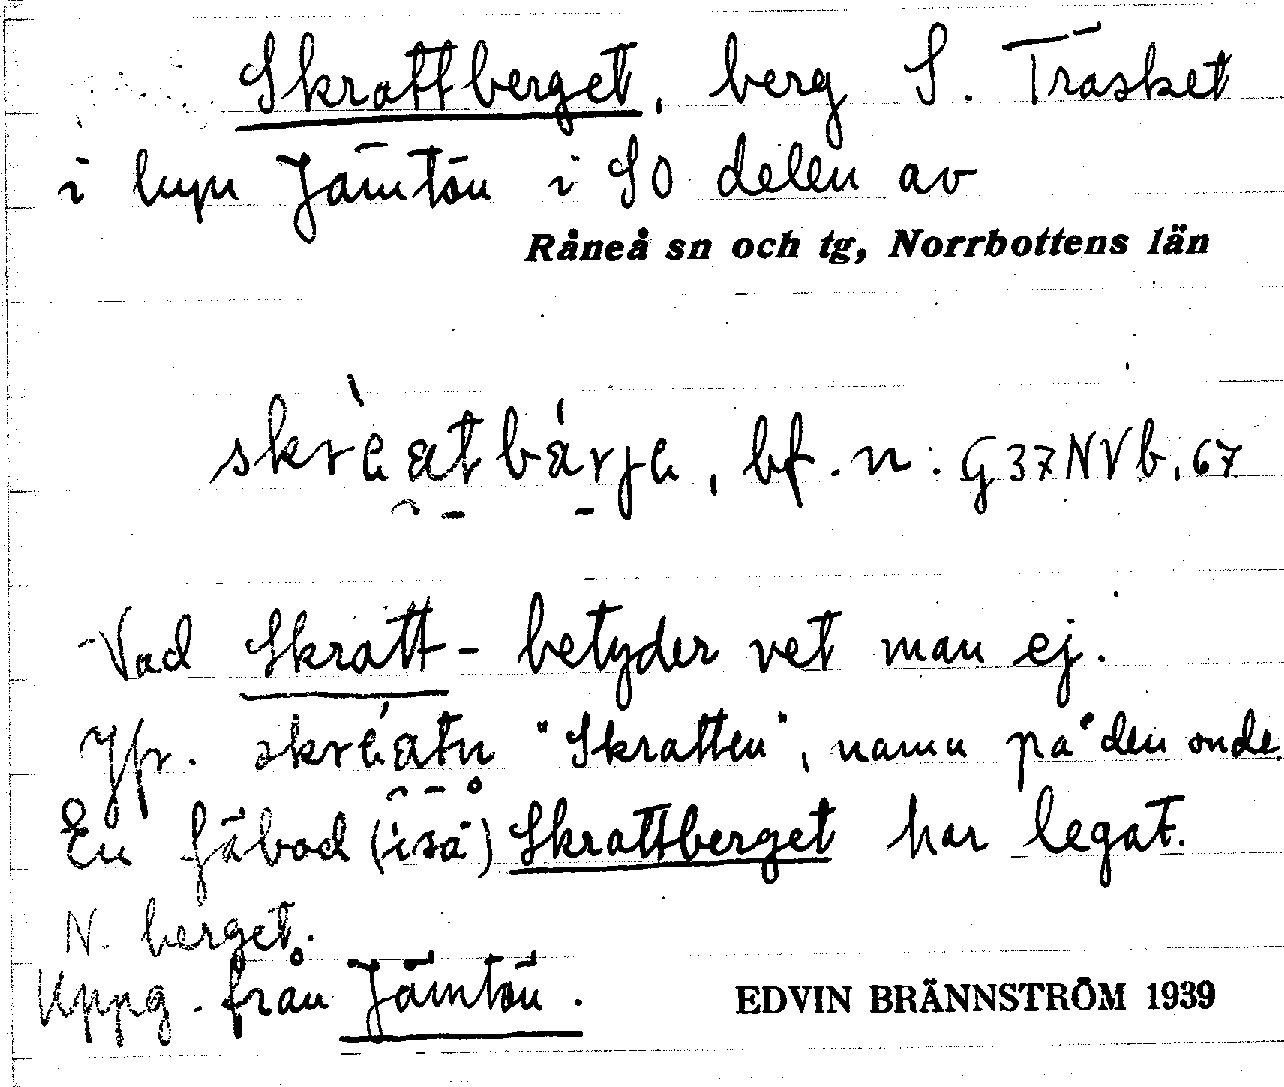 Skrattberget, berg S. Träsket
i byn Jämtön i SO delen av
Råneå sn och tg, Norrbottens län
bf. n: G37NVb.67
Vad Skratt- betyder vet man ej.
Jfr. "Skratten", namn på den onde.
En fäbod (isä) Skrattberget har legat
N. berget.
Uppg. från Jämtön.
EDVIN BRÄNNSTRÖM 1939